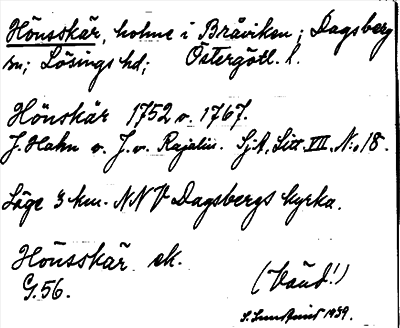 Hönsskär, holme i Bråviken; Dagsberg
sn; Lösings hd; Östergötl. l.
Hönskär 1752 v. 1767.
J. Hahn v. J. v. Rajalin. Sj.A. Litt VII. N:o 18.
Läge 3 km. NNV Dagsbergs kyrka.
Hönsskär ek.
G.56.
(Vänd!)
S. Sundquist 1939.